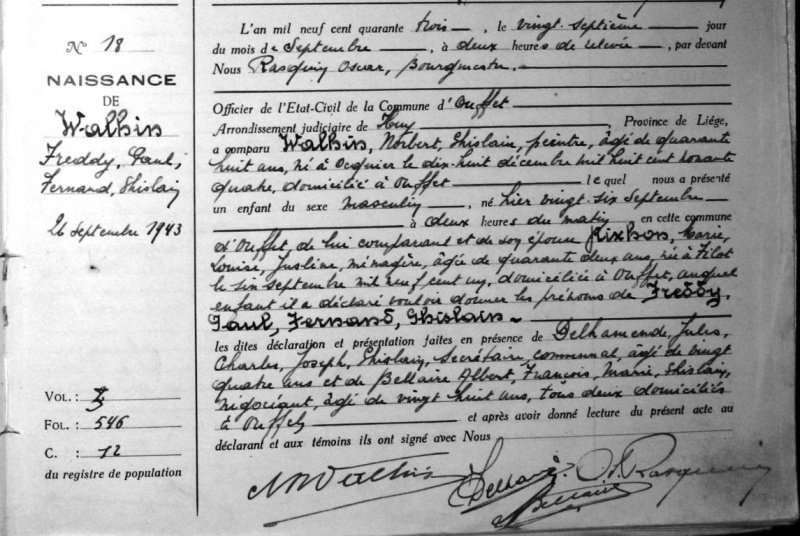 N° 18
NAISSANCE
DE
Walhin
Freddy, Paul,
Fernand, Ghislain
26 septembre 1943
VOL. : 3
FOL. : 546
C. : 12
du registre de population
L'an mil neuf cent quarante trois, le vingt-septième jour
du mois de Septembre, à deux heures de relevée, par devant
Nous Rasquin Oscar, Bourgmestre.
Officier de l'Etat-Civil de la Commune d'Ouffet
Arrondissement judiciaire de Huy, Province de Liége,
a comparu Walhin, Norbert, Ghislain, peintre, âgé de quarante
huit ans, né à Ocquier le dix-huit décembre mil huit cent nonante
quatre, domicilié à Ouffet lequel nous a présenté
un enfant du sexe masculin, né hier vingt six Septembre
à deux heures du matin en cette commune
d'Ouffet, de lui comparant et de son épouse Rixhon, Marie,
Louise, Justine, ménagère, âgée de quarante deux ans, née à Filot
le six septembre mil neuf cent un, domiciliée à Ouffet, auquel
enfant il a déclaré vouloir donner les prénoms de Freddy,
Paul, Fernand, Ghislain
les dites déclaration et présentation faites en présence de Delhamende, Jules,
Charles, Joseph, Ghislain, Secrétaire communal, âgé de vingt
quatre ans et de Bellaire Albert, François, Marie, Ghislain,
négociant, âgé de vingt huit ans, tous deux domiciliés
à Ouffet et après avoir donné lecture du présent acte au
déclarant et aux témoins ils ont signé avec Nous
N Walhin
O. Rasquin
Bellaire